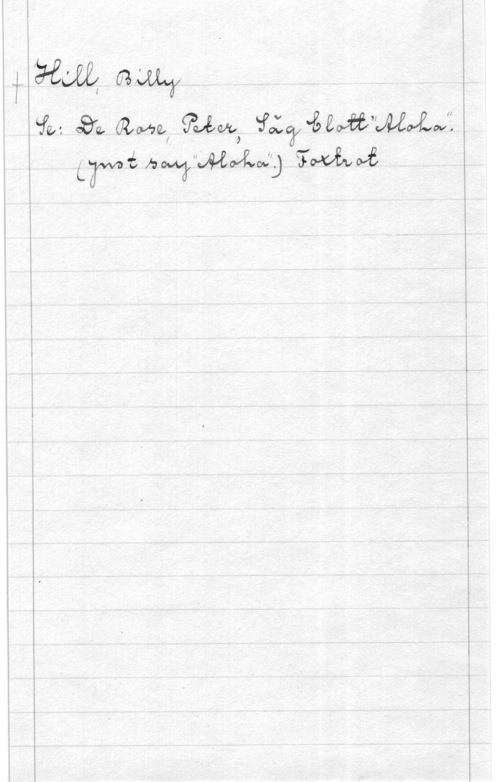 + Hill, Billy
Se: De Rose, Peter, Säg blott "Aloha".
(Just say "Aloha".) Foxtrot